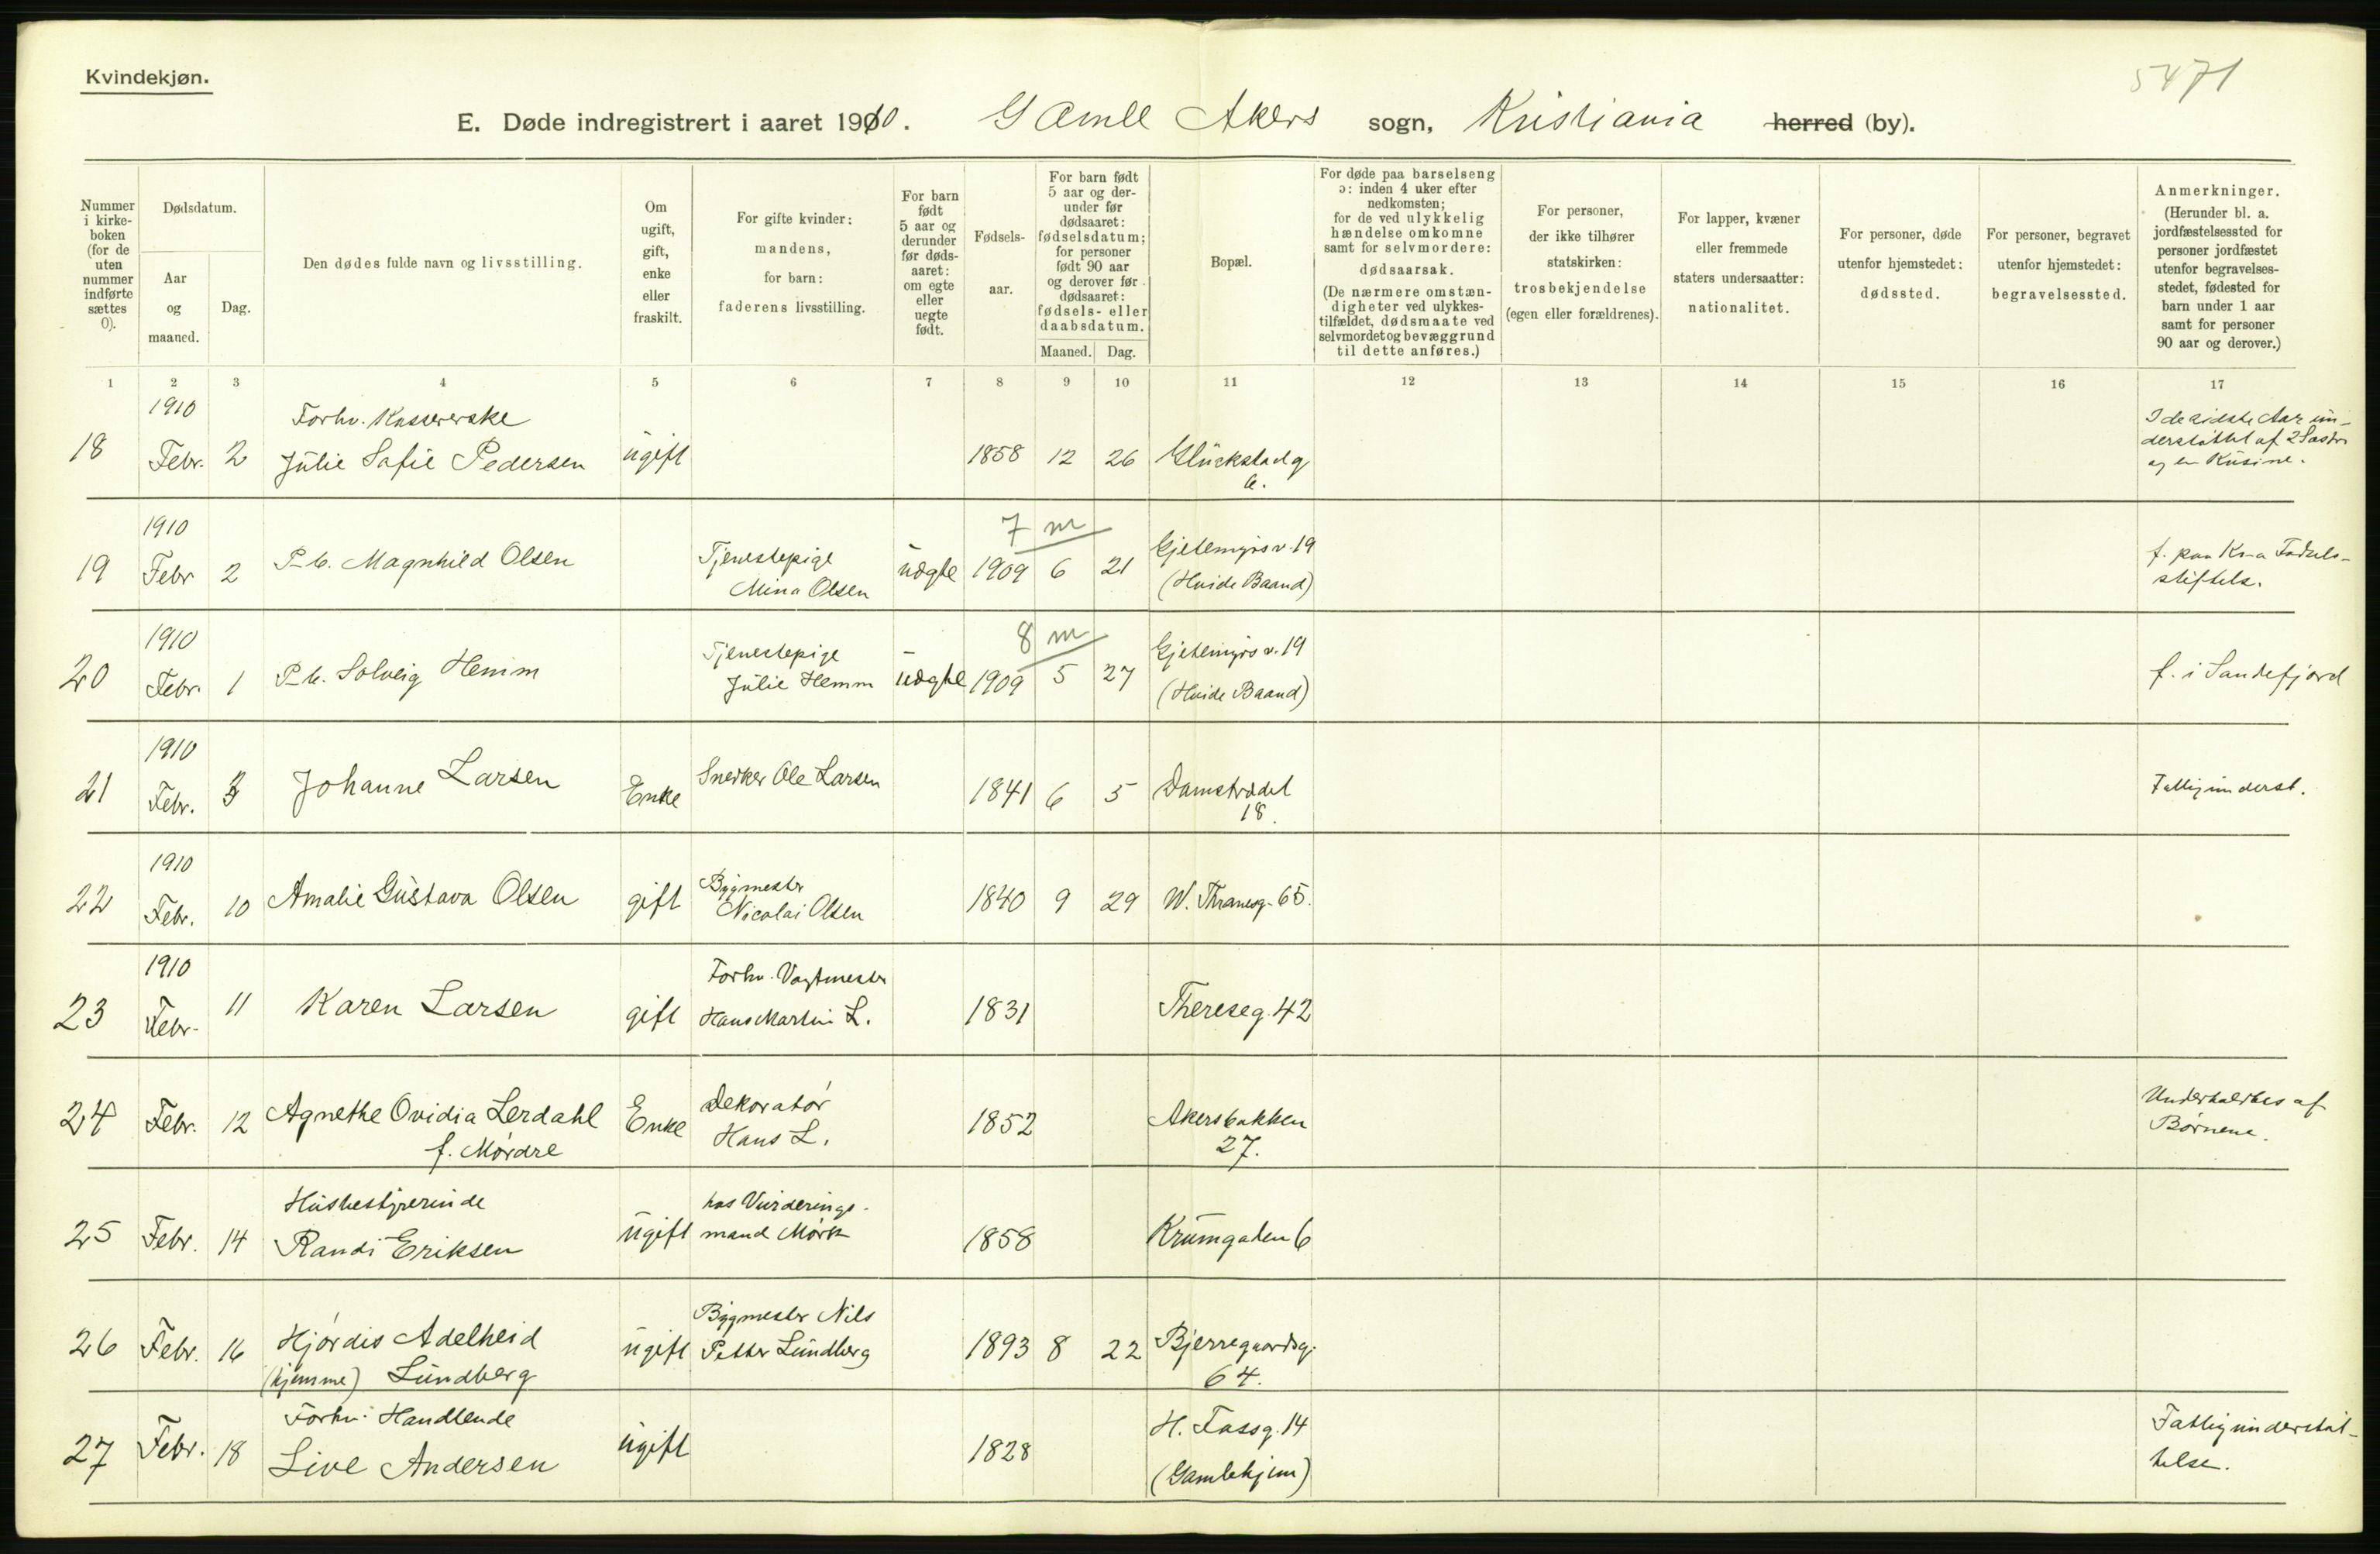 Kvindekjøn.
5471
E. Døde indregistrert i aaret 1910. Gamle Akers sogn, Kristiania herred (by).
Nummer i kirke-boken (for de uten nummer indførte sættes 0).
Dødsdatum.
Aar og maaned.
Dag.
Den dødes fulde navn og livsstilling.
Om ugift, gift, enke eller fraskilt.
For gifte kvinder: mandens, for barn: faderens livsstilling.
For barn født 5 aar og derunder før døds-aaret: om egte eller uegte født.
Fødsels-aar.
For barn født 5 aar og der-under før dødsaaret: fødselsdatum; for personer født 90 aar og derover før dødsaaret: fødsels- eller daabsdatum.
Maaned. Dag.
Bopæl.
For døde paa barselseng ɔ: inden 4 uker efter nedkomsten; for de ved ulykkelig hændelse omkomne samt for selvmordere: dødsaarsak. (De nærmere omstæn-digheter ved ulykkes-tilfældet, dødsmaate ved selvmordet og bevæggrund til dette anføres.)
For personer, der ikke tilhører statskirken: trosbekjendelse (egen eller forældrenes).
For lapper, kvæner eller fremmede staters undersaatter: nationalitet.
For personer, døde utenfor hjemstedet: dødssted.
For personer, begravet utenfor hjemstedet: begravelsessted.
Anmerkninger. (Herunder bl. a. jordfæstelsessted for personer jordfæstet utenfor begravelses-stedet, fødested for barn under 1 aar samt for personer 90 aar og derover.)
1 2 3 4 5 6 7 8 9 10 11 12 13 14 15 16 17
18 1910 Febr. 2 Forhv. Kassererske Julie Sofie Pedersen ugift 1858 12 26 Glückstadg 6. I de sidste Aar un-derstøttet af 2 Søstre og en Kusine.
19 1910 Febr 2 P-b. Magnhild Olsen Tjenestepige Mina Olsen uægte 7 m 1909 6 21 Gjetemyrsv. 19 (Hvide Baand) f. paa Kr-a Fødsels-stiftels.
20 1910 Febr. 1 P-b. Solveig Hemm Tjenestepige Julie Hemm uægte 8 m 1909 5 27 Gjetemyrsv. 19 (Hvide Baand) f. i Sandefjord
21 1910 Febr. 3 Johanne Larsen Enke Snedker Ole Larsen 1841 6 5 Damstrædet 18. Fattigunderst.
22 1910 Febr. 10 Amalie Gustava Olsen gift Bygmester Nicolai Olsen 1840 9 29 W. Thranesg. 65.
23 1910 Febr. 11 Karen Larsen gift Forhv. Vagtmester Hans Martin L. 1831 Thereseg. 42
24 Febr. 12 Agnethe Ovidia Lerdahl f. Mørdre Enke Dekoratør Hans L. 1852 Akersbakken 27. Underholdtes af Børnene.
25 Febr. 14 Husbestyrerinde Randi Eriksen ugift hos Vurderings-mand Mørk 1858 Krumgaden 6
26 Febr. 16 Hjørdis Adelheid (hjemme) Lundberg ugift Bygmester Nils Petter Lundberg 1893 8 22 Bjerregaardsg. 64.
27 Febr. 18 Forhv. Handlende Live Andersen ugift 1828 H. Fossg. 14 (Gamlehjem) Fattigunderstøt-telse.